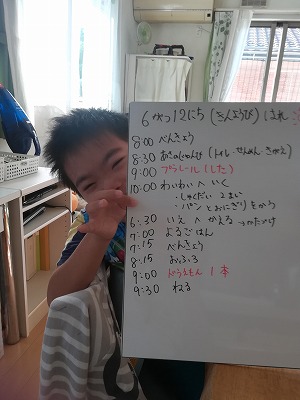 6がつ12にち(きんようび)はれ
8:00 べんきょう
8:30 あさのじゅんび(トイレ・せんめん・きがえ)
9:00 プラレール(した)
10:00 わいわいへ いく
・しゅくだい 2まい
・パンとおにぎりをかう
6:30 いえへ かえる
7:00 よるごはん
7:15 べんきょう
8:15 おふろ
9:00 どらえもん 1本
9:30 ねる